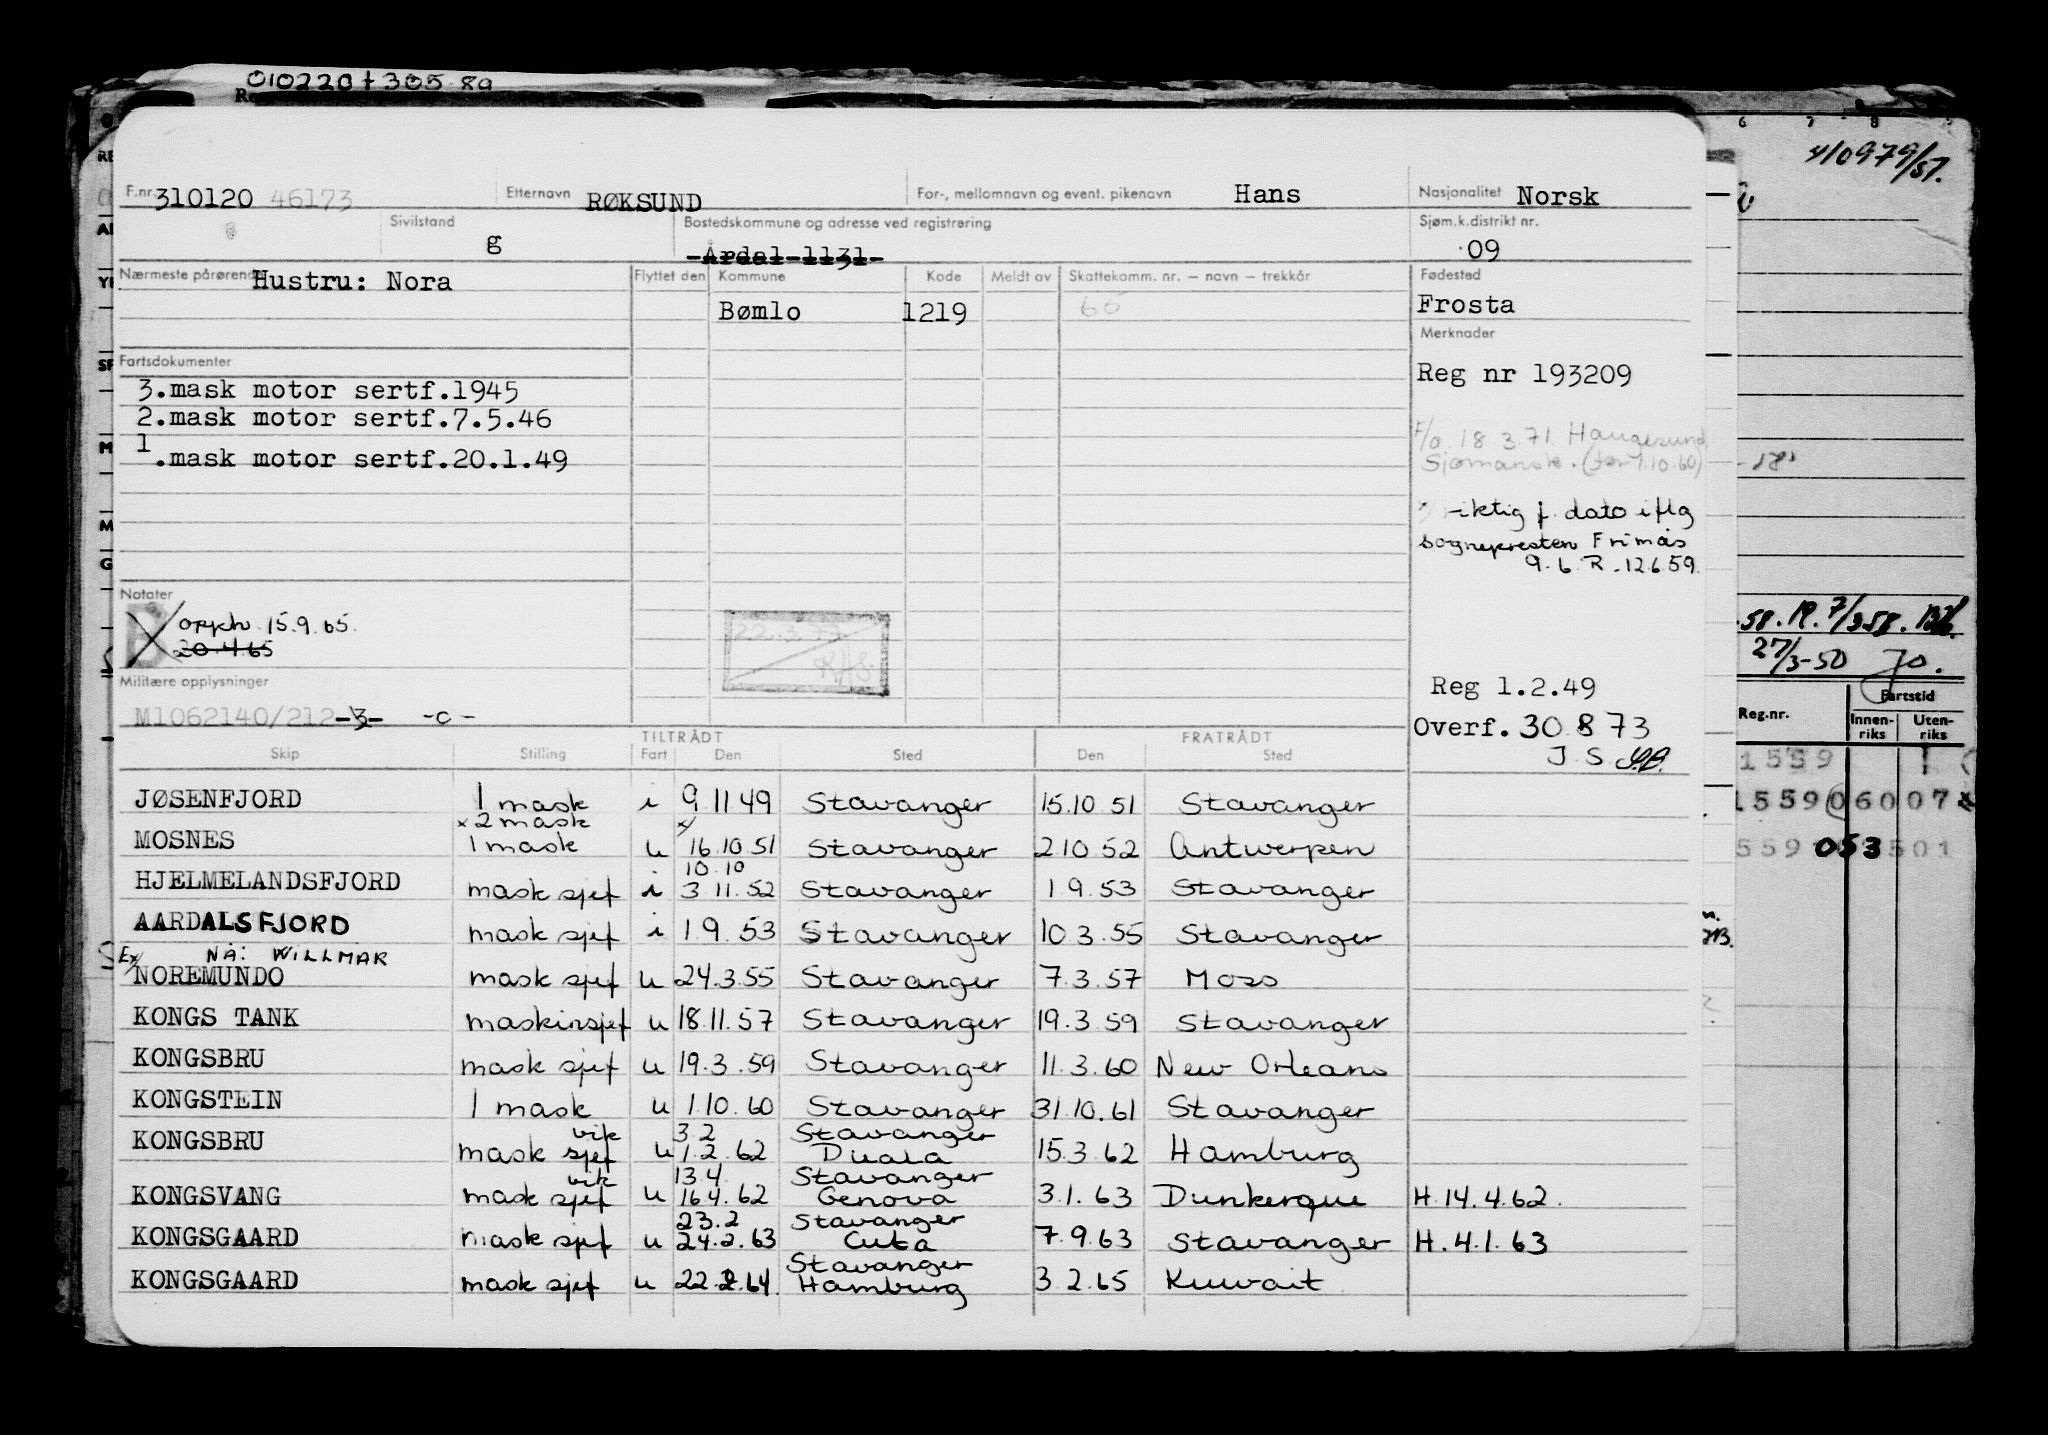 010220 + 305 89
F.nr. 310120 46173 Etternavn RØKSUND For-, mellomnavn og event. pikenavn Hans Nasjonalitet Norsk
Sivilstand g Bostedskommune og adresse ved registrering Årdal 1131 Sjøm.k.distrikt nr. 09
Nærmeste pårørende Hustru: Nora Flyttet den Kommune Kode Meldt av Skattekomm. nr. — navn — trekkår Fødested
Bømlo 1219 65 Frosta
Merknader
Fartsdokumenter
Reg nr 193209
3.mask motor sertf.1945
2.mask motor sertf.7.5.46
1.mask motor sertf.20.1.49
F/o 18 3.71 Haugesund
Sjømannsk. (før 1.10.60)
riktig f. dato iflg
sognepresten Frimas
9.6.R.12659
Notater
B opph 15.9.65
20.4.65
22.3.77
RAS
Militære opplysninger
Reg 1.2.49
M1062140/212-3- -c-
Overf. 30 8 73
J.S.
TILTRÅDT FRATRÅDT
Skip Stilling Fart Den Sted Den Sted
JØSENFJORD 1 mask i 9.11.49 Stavanger 15.10.51 Stavanger
x 2 mask x/
MOSNES 1 mask u 16.10.51 Stavanger 2.10.52 Antwerpen
10.10
HJELMELANDSFJORD mask sjef i 3.11.52 Stavanger 1.9.53 Stavanger
AARDALSFJORD mask sjef i 1.9.53 Stavanger 10.3.55 Stavanger
Ex NÅ: WILLMAR
NOREMUNDO mask sjef u 24.3.55 Stavanger 7.3.57 Moss
KONGS TANK maskinsjef u 18.11.57 Stavanger 19.3.59 Stavanger
KONGSBRU mask sjef u 19.3.59 Stavanger 11.3.60 New Orleans
KONGSTEIN 1 mask u 1.10.60 Stavanger 31.10.61 Stavanger
vik 3.2 Stavanger
KONGSBRU mask sjef u 1.2.62 Duala 15.3.62 Hamburg
vik 13.4. Stavanger
KONGSVANG mask sjef u 16.4.62 Genova 3.1.63 Dunkerque H.14.4.62.
23.2 Stavanger
KONGSGAARD mask sjef u 24.2.63 Cuba 7.9.63 Stavanger H.4.1.63
Stavanger
KONGSGAARD mask sjef u 22.2.64 Hamburg 3.2.65 Kuwait
6 7 8
410979/51.
27/3-50 Jo.
Fartstid
Reg.nr. Innenriks Utenriks
1559
1559 0600 7
559 053 501